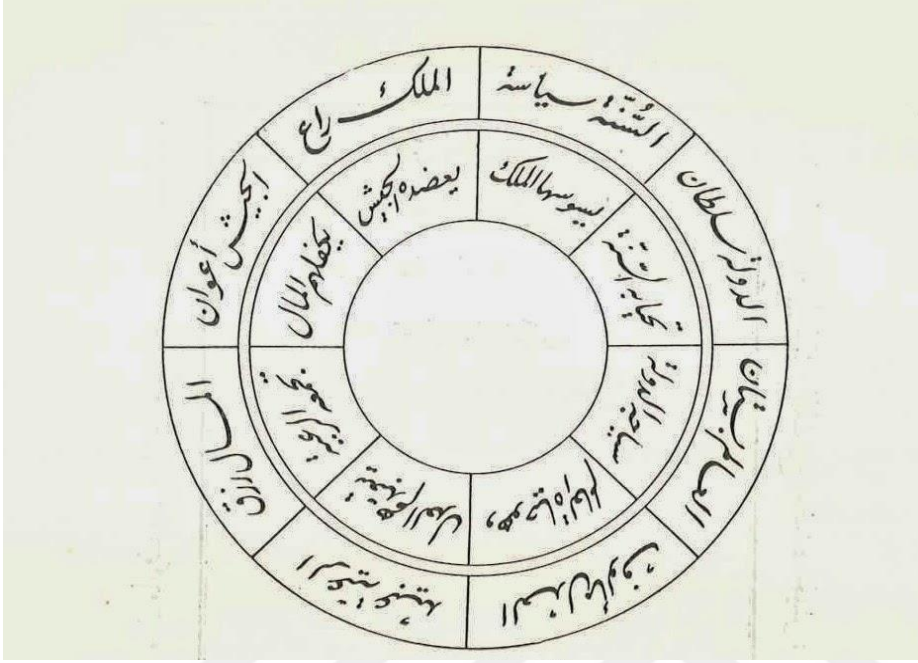 العالم بستان
سياجه الدولة
الدولة سلطان
تحيا به السنة
السُّنّة سياسة
يسوسها الملك
الملك راع
يعضده الجيش
الجيش أعوان
يكفلهم المال
المال رزق
تجمعه الرعية
الرعية عبيد
يتعبدهم العدل
العدل مألوف
وهو حياة العالم